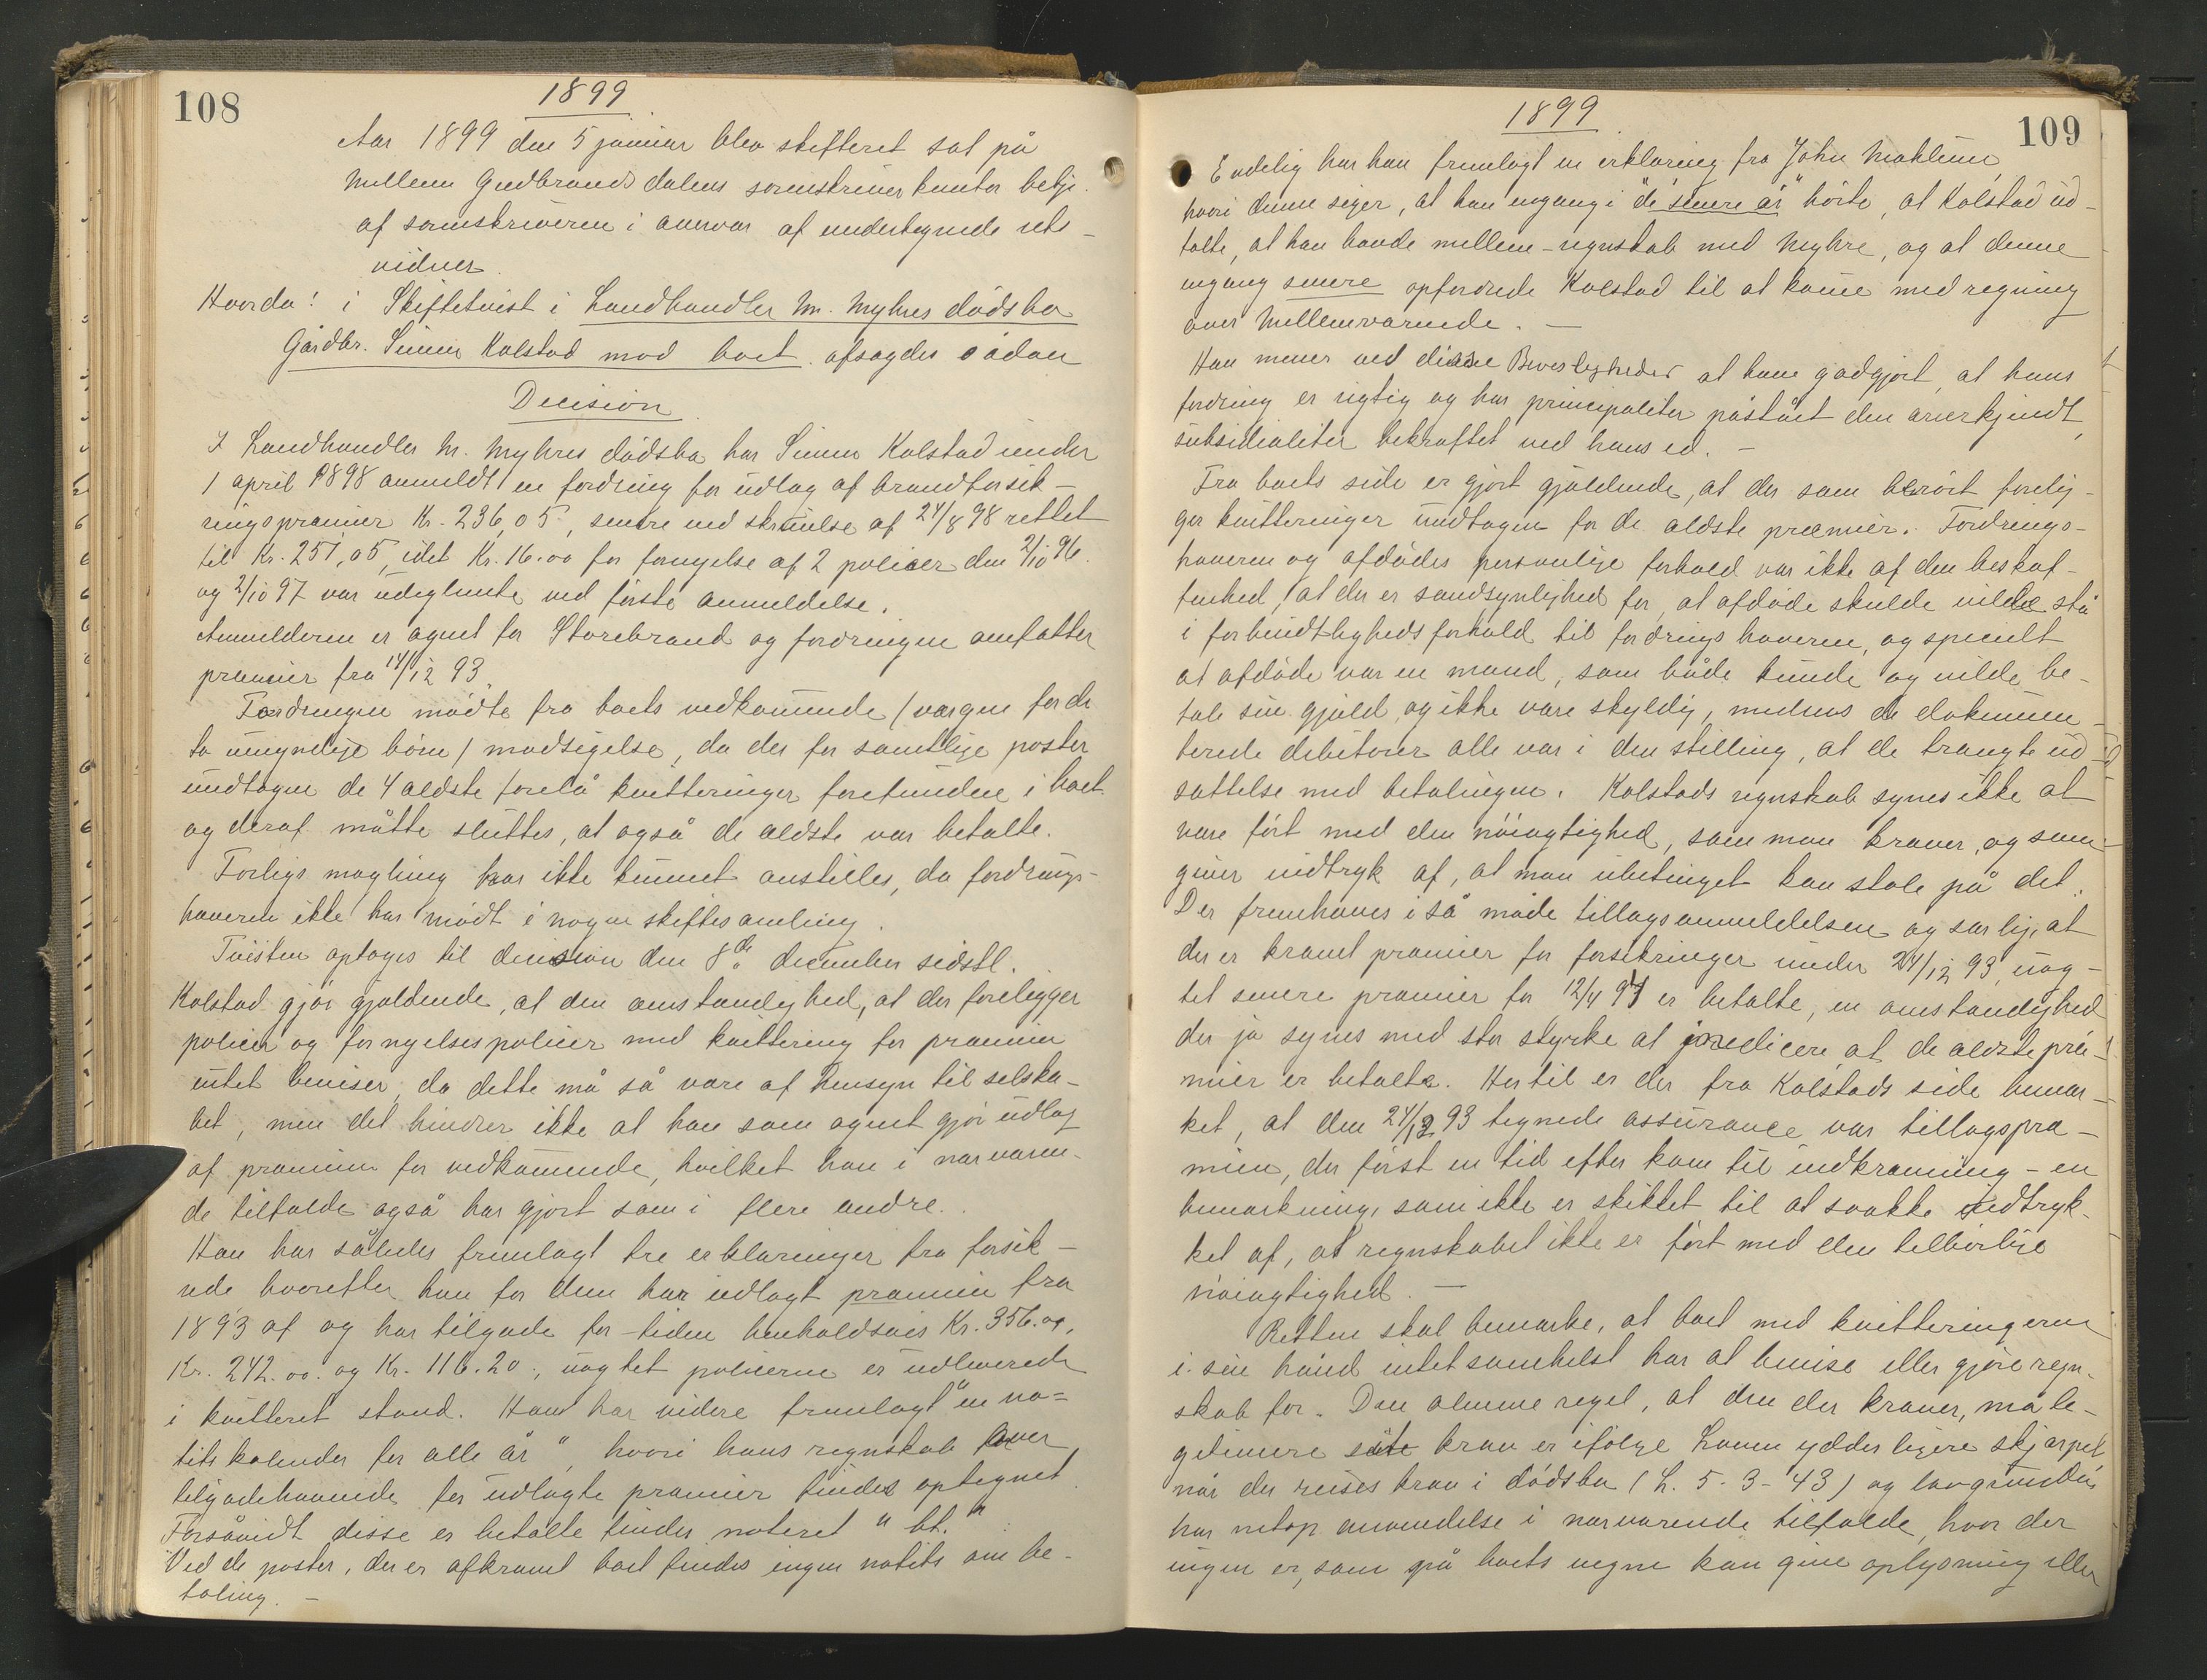 108
1899
Aar 1899 den 5 januar blev skifteret sat på
Mellem Gudbrandsdalens sorenskriverkontor betje.
af sorenskriveren i overvær af undertegnede rets-
vidner.
Hvorda: i Skiftetvist i Landhandler M. Myhres dödsbo
Gårdbr. Simen Kolstad mod boet afsagdes sådan
Decision
I Landhandler M. Myhres dödsbo har Simen Kolstad under
1 april 1898 anmeldt en fordring for udlæg af brandforsik-
ringspræmier Kr. 236,05, senere ved skrivelse af 24/8 98 rettet
til Kr. 251,05, idet Kr. 16.00 for fornyelse af 2 policer den 2/10 96
og 2/10 97 var udeglemte ved förste anmeldelse.
Anmelderen er agent for Storebrand og fordringen omfatter
præmier fra 14/12 93.
Fordringen mödte fra boets vedkommende (værgen for de
to umyndige börn) modsigelse, da der for samtlige poster
undtagen de 4 ældste forelå kvitteringer forefundne i boet
og deraf måtte sluttes, at også de ældste var betalte.
Forligs mægling har ikke kunnet anstilles, da fordrings-
haveren ikke har mödt i nogen skiftesamling.
Tvisten optoges til decision den 8de december sidstl.
Kolstad gjör gjældende, at den omstændighed, at der foreligger
policer og fornyelsespolicer med kvittering for præmien
intet beviser, da dette må så være af hensyn til selska-
bet, men det hindrer ikke at han som agent gjör udlæg
af præmien for vedkommende, hvilket han i nærværen-
de tilfælde også har gjort som i flere andre.
Han har således fremlagt tre erklæringer fra forsik-
rede hvorefter han for dem har udlagt præmien fra
1893 af og har tilgode for tiden henholdsvis Kr. 356.00,
Kr. 242.00. og Kr. 116.20., uagtet policerne er udleverede
i kvitteret stand. Han har videre fremlagt "en no=
tits kalender for alle år", hvori hans regnskab over
tilgodehavende for udlagte præmier findes optegnet.
Forsåvidt disse er betalte findes noteret "bt."
Ved de poster, der er afkrævet boet findes ingen notits om be-
taling. -
109
1899
Endelig har han fremlagt en erklæring fra John Mæhlum,
hvori denne siger, at han engang i "de senere år" hörte, at Kolstad ud-
talte, at han havde mellem-regnskab med Myhre, og at denne
engang senere opfordrede Kolstad til at komme med regning
over Mellemværende. -
Han mener ved disse Bevisligheder at have godgjort, at hans
fordring er rigtig og har principaliter påstået den anerkjendt,
subsidialiter bekræftet ved hans ed. -
Fra boets side er gjort gjældende, at der som berört forelig-
ger kvitteringer undtagen for de ældste præmier. Fordrings-
haveren og afdödes personlige forhold var ikke af den beskaf-
fenhed, at der er sandsynlighed for, at afdöde skulde ville stå
i forbindtlighedsforhold til fordringshaveren, og specielt
at afdöde var en mand, som både kunde og vilde be-
tale sin gjæld og ikke være skyldig, medens de dokumen-
terede debitorer alle var i den stilling, at de trængte ud-
sættelse med betalingen. Kolstads regnskab synes ikke at
være fört med den nöiagtighed, som man kræver, og som
giver indtryk af, at man ubetinget kan stole på det.
Der fremhæves i så måde tillægsanmeldelsen og særlig, at
der er krævet præmier for forsikringer under 24/12 93, uag-
tet senere præmier for 12/4 94 er betalte, en omstændighed
der jo synes med stor styrke at indicere at de ældste præ-
mier er betalte. Hertil er der fra Kolstads side bemær-
ket, at den 24/12 93 tegnede assurance var tillægspræ-
mien, der först en tid efter kom til indkrævning - en
bemærkning, som ikke er skikket til at svække indtryk-
ket af, at regnskabet ikke er fört med den tilbörlige
nöiagtighed. -
Retten skal bemærke, at boet med kvitteringerne
i sin hånd intetsomhelst har at bevise eller gjöre regn-
skab for. Den almene regel, at den der kræver, må le-
gitimere sit krav er ifölge Loven ydderligere skjærpet
når der reises krav i dödsbo (L. 5-3-43) og lovgrunden
har netop anvendelse i nærværende tilfælde, hvor der
ingen er, som på boets vegne kan give oplysning eller